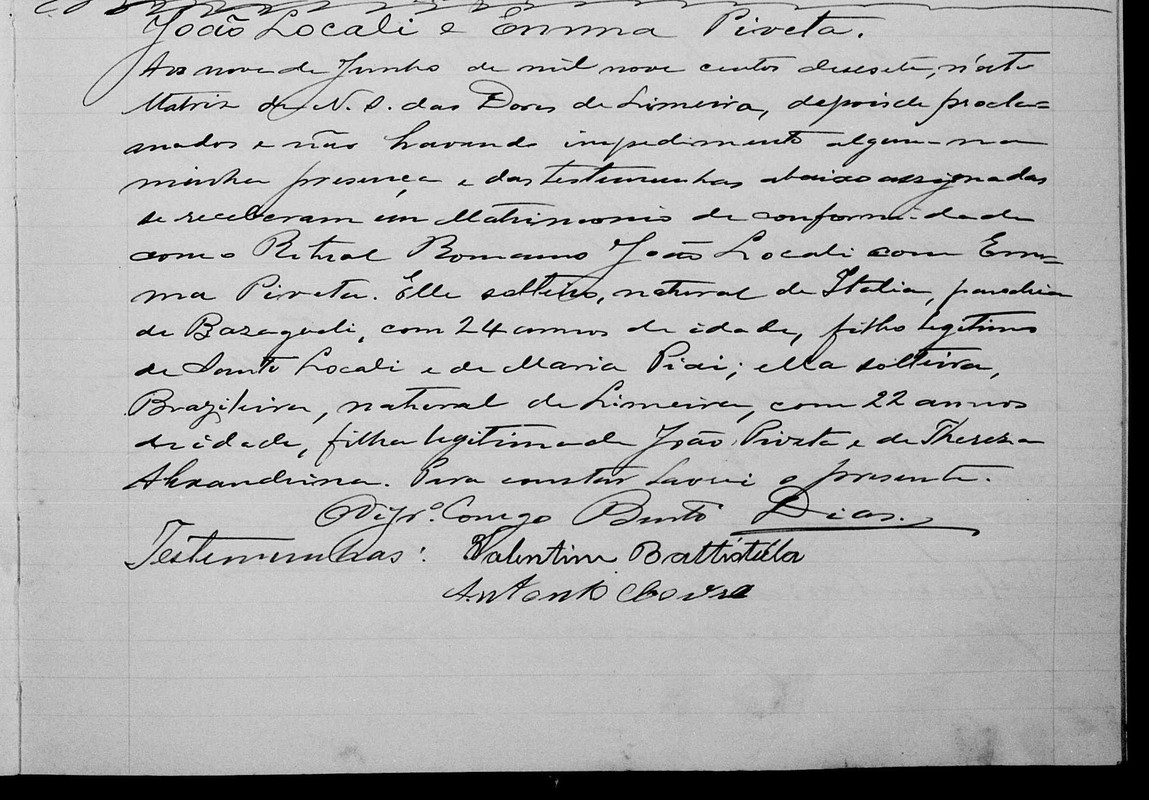 João Locali e Emma Piveta.
Aos nove de Junho de mil nove centos desesete, n'esta
Matriz de N. S. das Dores de Limeira, depois de procla-
mados e não havendo impedimento algum na
minha presença e das testemunhas abaixo assignadas
se receberam em Matrimonio de conformidade
com o Ritual Romano João Locali com Em-
ma Piveta. Elle solteiro, natural de Italia, parochia
de com 24 annos de idade, filho legitimo
de Santo Locali e de Maria Piai; ella solteira,
Brazileira, natural de Limeira, com 22 annos
de idade, filha legitima de João Piveta e de Thereza
Alexandrina. Para constar lavrei o presente.
O Vigr.º Conego Bento Dias.
Testemunhas: Valentim Battistella
Antonio